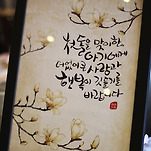 첫돌을 맞이한
아기에게
더없이 큰 사랑과
행복이 깃들기를
바랍니다